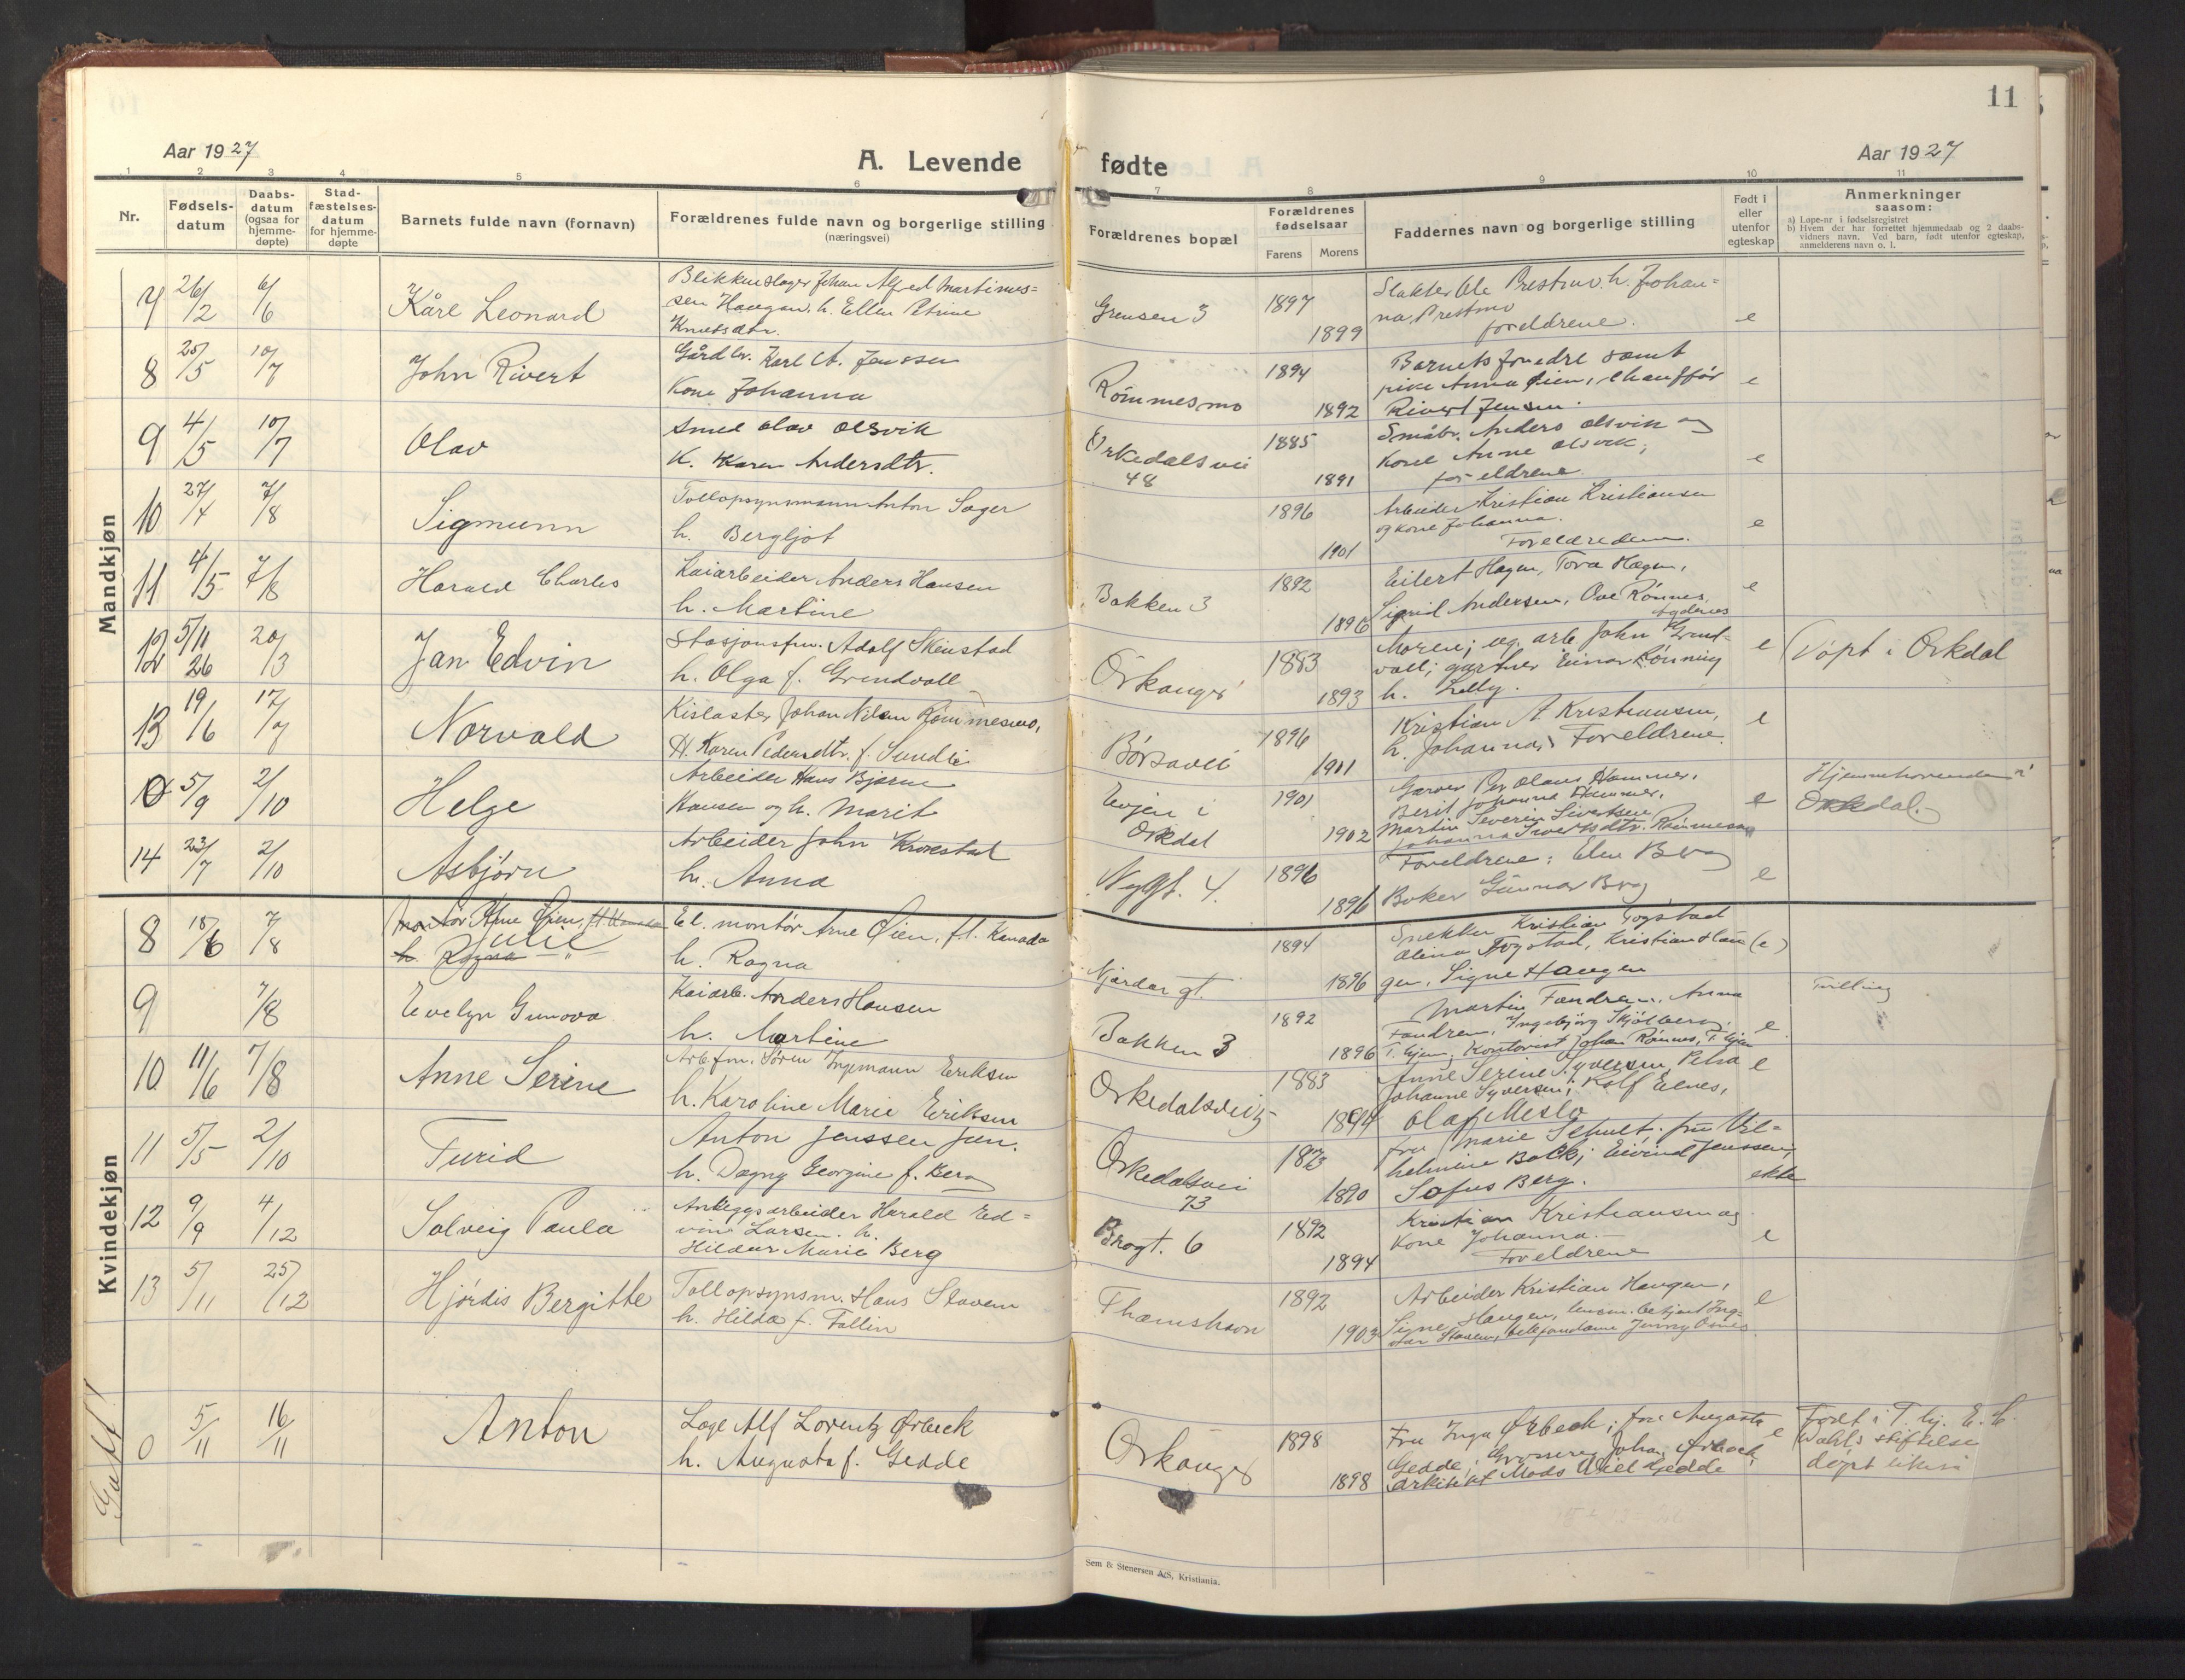 11
Aar 1927
A. Levende
fødte
Aar 1927
1 2 3 4 5 6 7 8 9 10 11
Nr.
Fødsels-
datum
Daabs-
datum
(ogsaa for
hjemme-
døpte)
Stad-
fæstelses-
datum
for hjemme-
døpte
Barnets fulde navn (fornavn)
Forældrenes fulde navn og borgerlige stilling
(næringsvei)
Forældrenes bopæl
Forældrenes
fødselsaar
Farens Morens
Faddernes navn og borgerlige stilling
Født i
eller
utenfor
egteskap
Anmerkninger
saasom:
a) Løpe-nr i fødselsregistret
b) Hvem der har forrettet hjemmedaab og 2 daabs-
vidners navn. Ved barn, født utenfor egteskap,
anmelderens navn o. l.
Mandkjøn
7 26/2 6/6 Kåre Leonard
Blikkenslager Johan Alfred Martinus-
sen Haugan, h. Ellen Petrine
Knutsdtr.
Grensen 3 1897 1899
Slakter Ole Prestmo. h. Johan-
na Prestmo
foreldrene. e
8 25/5 10/7 John Rivert
Gårdbr. Karl A. Jenssen
Kone Johanna
Rømmesmo 1894 1892
Barnets foredre samt
pike Anna Øien, chauffør
Rivert Jensen. e
9 4/5 10/7 Olav
Smed Olav Olsvik
K. Karen Andersdtr.
Orkedalsvei
48 1885 1891
Småbr. Anders Olsvik og
Kone Anne Olsvik,
foreldrene. e
10 27/4 7/8 Sigmunn
Tollopsynsmann Anton Sager
h. Bergljot
1896 1901
Arbeider Kristian Kristiansen
og kone Johanna.
e
11 4/5 7/8 Harald Charles
Kaiarbeider Anders Hansen
h. Martine
Bakken 3 1892 1896
Eilert Hagen, Tora Hagen,
Sigrid Andersen, Ove Rønnes, e
12 5/11 26 20/3 Jan Edvin
Stasjonsfm. Adolf Skeistad
h. Olga f. Grindvoll
Orkanger 1883 1893
Moren; og arb John Grind-
voll; gartner Einar Rønning
h. Lelly. e
Døpt i Orkdal
13 19/6 17/7 Norvald
Kislaster Johan Nilsen Rømmesmo,
H. Karen Pedersdtr. f. Sundli
Børsavei 1896 1901
Kristian A Kristiansen,
h. Johanna, Foreldrene. e
0 5/9 2/10 Helge
Arbeider Hans Bjarne
Hansen og h. Marit
Evjen i
Orkdal 1901 1902
Garver Per Olaus Hammer,
Berit Johanna Hammer,
Martin Severin Sivertsen,
Johanna Sivertsdtr. Rømmesmo e
Hjemmehørende i
Orkdal.
14 23/7 2/10 Asbjørn
Arbeider John Krokstad
h. Anna
Nygt. 4. 1896 1896
Foreldrene; Elen Berg
Baker Gunnar Berg e
Kvindekjøn
8 18/6 7/8 Montør Arne Øien, ft. Kanada
Julie
h. Ragna
El. montør Arne Øien, ft. Kanada
h. Ragna
Njardar gt. 1894 1896
Snekker Kristian Fogstad
Olina Fogstad, Kristian Hau
gen, Signe Haugen (e)
9 7/8 Evelyn Gunova
Kaiarb. Anders Hansen
h. Martine
Bakken 3 1892 1896
Martin Fandrem, Anna
Fandrem, Ingebjørg Skjølberg,
T. hjem, Kontorist Johan Rønnes, T. hjem e
Tvilling
10 11/6 7/8 Anne Serine
Arbfm. Søren Ingemann Eriksen
h. Karoline Marie Eriksen
1883 1894
Anne Serine Syversen, Petra
Johanne Syversen; Rolf Eenes,
Olaf Meslo e
11 5/5 2/10 Turid
Anton Jenssen jun.
h. Dagny Georgine f. Berg
Orkedalsvei
73 1873 1890
fru Marie Schult; fru Vil-
helmine Balk; Eivind Jenssen,
Sofus Berg. ekte
12 9/9 4/12 Solveig Paula
Anleggsarbeider Harald Ed-
vin Larsen. h.
Hildur Marie Berg
Brogt. 6 1892 1894
Kristian Kristiansen og
Kone Johanna.
Foreldrene e
13 5/11 25/12 Hjørdis Bergitte
Tollopsynsm. Hans Stavem
h. Hilda f. Fallin
Thamshavn 1892 1903
Arbeider Kristian Haugen,
Signe Haugen, lensm. betjent Ing-
var Staven, telefondame Jenny Omes. e
Gutt!
0 5/11 16/11 Anton
Læge Alf Lorentz Ørbeck
h. Augusta f. Gedde
Orkanger 1898 1898
Fru Inga Ørbeck; fru Augusta
Gedde; Grosserer Johan Ørbeck;
arkitekt Mads Wiel Gedde e
Født i T. hj. E. C.
Dahls stiftelse
døpt likeså
Sem & Stenersen A/S, Kristiania.